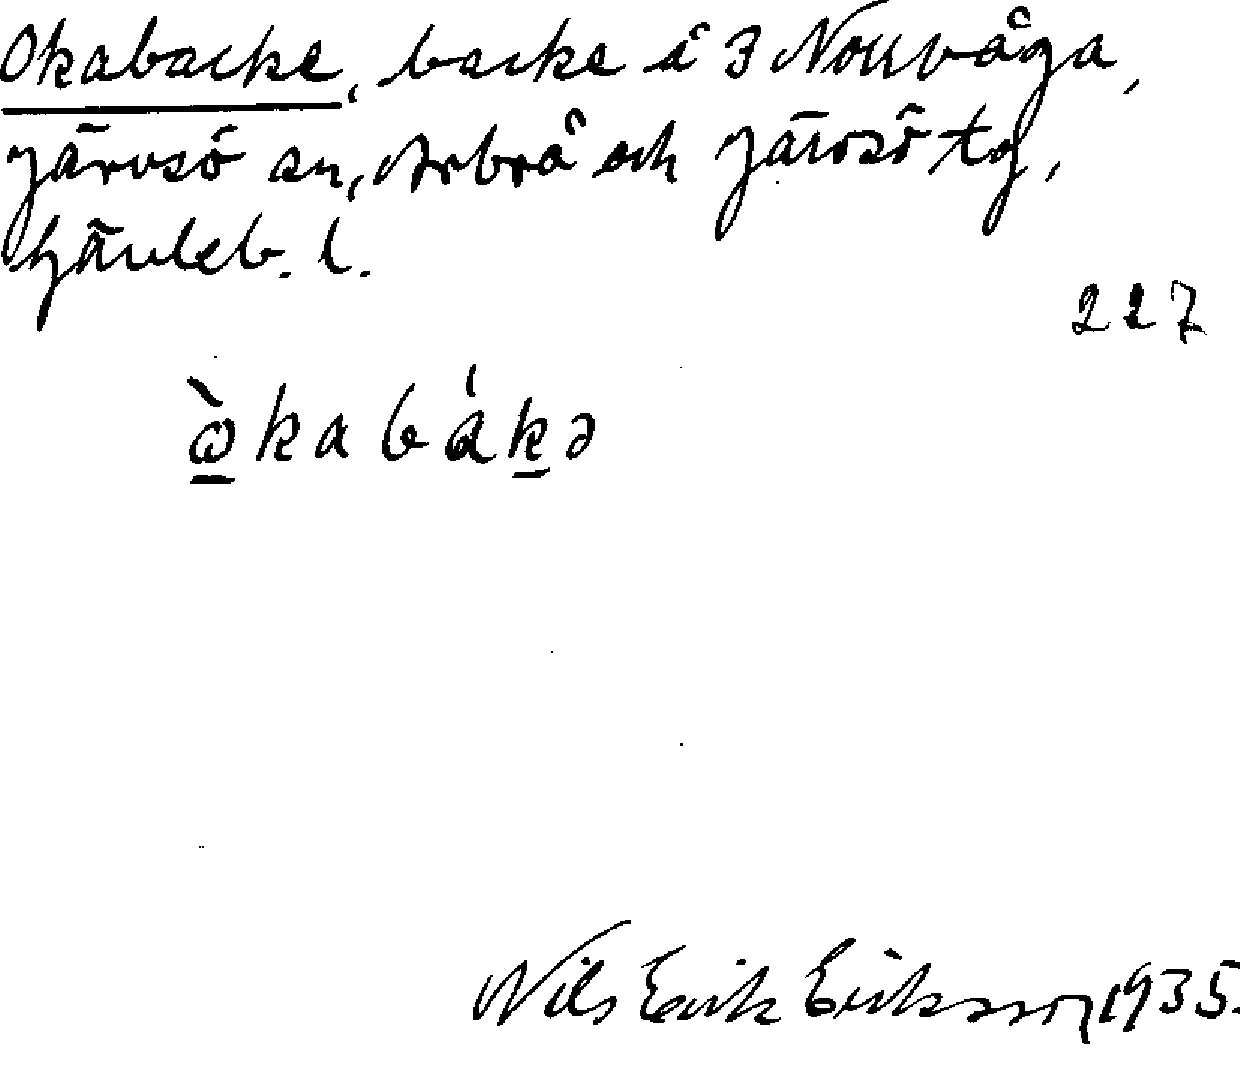 Okabacke, backe i 3 Norrvåga,
Järvsö sn, Arbrå och Järvsö tg,
Gävleb. l.
227
ò̲kabák̲ə
Nils Erik Eriksson 1935.